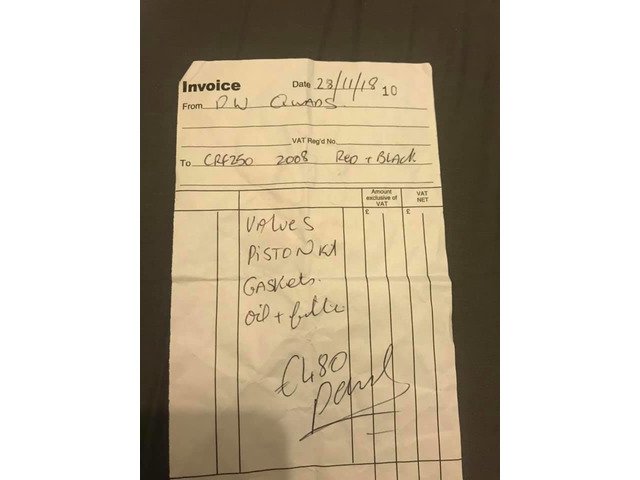 Invoice Date 23/11/18 10
From DW QUADS
VAT Reg'd No.
To CRF250 2008 RED + BLACK
Amount exclusive of VAT VAT NET
£ £
VALVES
PISTON Kit
GASKETS.
oil + filter
£480